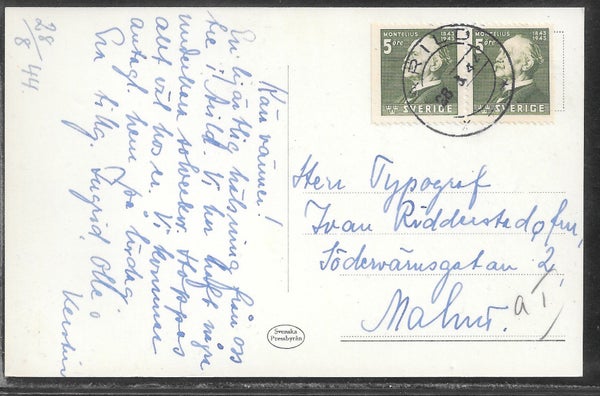 28/8 44.
Kära vänner!
En hjärtlig hälsning från oss
tre i Arild. Vi har haft några
underbara solveckor. Hoppas
allt väl hos er. Vi kommer
antagl. hem på lördag.
Era tillg. Ingrid, Olle o
Kerstin
MONTELIUS 1843 1943
5 öre
SVERIGE
MONTELIUS 1843 1943
5 öre
SVERIGE
ARILD
28 8 44
Herr Typograf
Ivan Ridderstedt o fru,
Södervärnsgatan 2,
Malmö.
Svenska
Pressbyrån